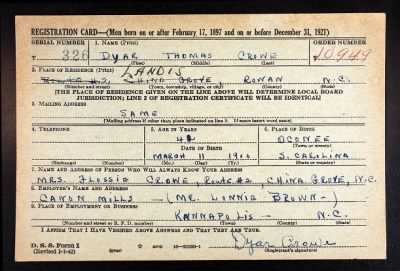 REGISTRATION CARD—(Men born on or after February 17, 1897 and on or before December 31, 1921)
SERIAL NUMBER 1. NAME (Print) ORDER NUMBER
T 326 DYAR THOMAS CROWE 10949
(First) (Middle) (Last)
2. PLACE OF RESIDENCE (Print) LANDIS
Route #2, CHINA GROVE, ROWAN N.C.
(Number and street) (Town, township, village, or city) (County) (State)
(THE PLACE OF RESIDENCE GIVEN ON THE LINE ABOVE WILL DETERMINE LOCAL BOARD
JURISDICTION; LINE 2 OF REGISTRATION CERTIFICATE WILL BE IDENTICAL)
3. MAILING ADDRESS
SAME
(Mailing address if other than place indicated on line 2. If same insert word same)
4. TELEPHONE 5. AGE IN YEARS 6. PLACE OF BIRTH
OCONEE
DATE OF BIRTH (Town or county)
MARCH 11 1900 S. CAROLINA
(Exchange) (Number) (Mo.) (Day) (Yr.) (State or country)
7. NAME AND ADDRESS OF PERSON WHO WILL ALWAYS KNOW YOUR ADDRESS
MRS. FLOSSIE CROWE, ROUTE #2, CHINA GROVE, N.C.
8. EMPLOYER'S NAME AND ADDRESS
CANON MILLS (MR. LONNIE BROWN-)
9. PLACE OF EMPLOYMENT OR BUSINESS
KANNAPOLIS- N.C.
(Number and street or R. F. D. number) (Town) (County) (State)
I AFFIRM THAT I HAVE VERIFIED ABOVE ANSWERS AND THAT THEY ARE TRUE.
D. S. S. Form 1 Dyar Crowe
(Revised 1-1-42) (over) (Registrant's signature)